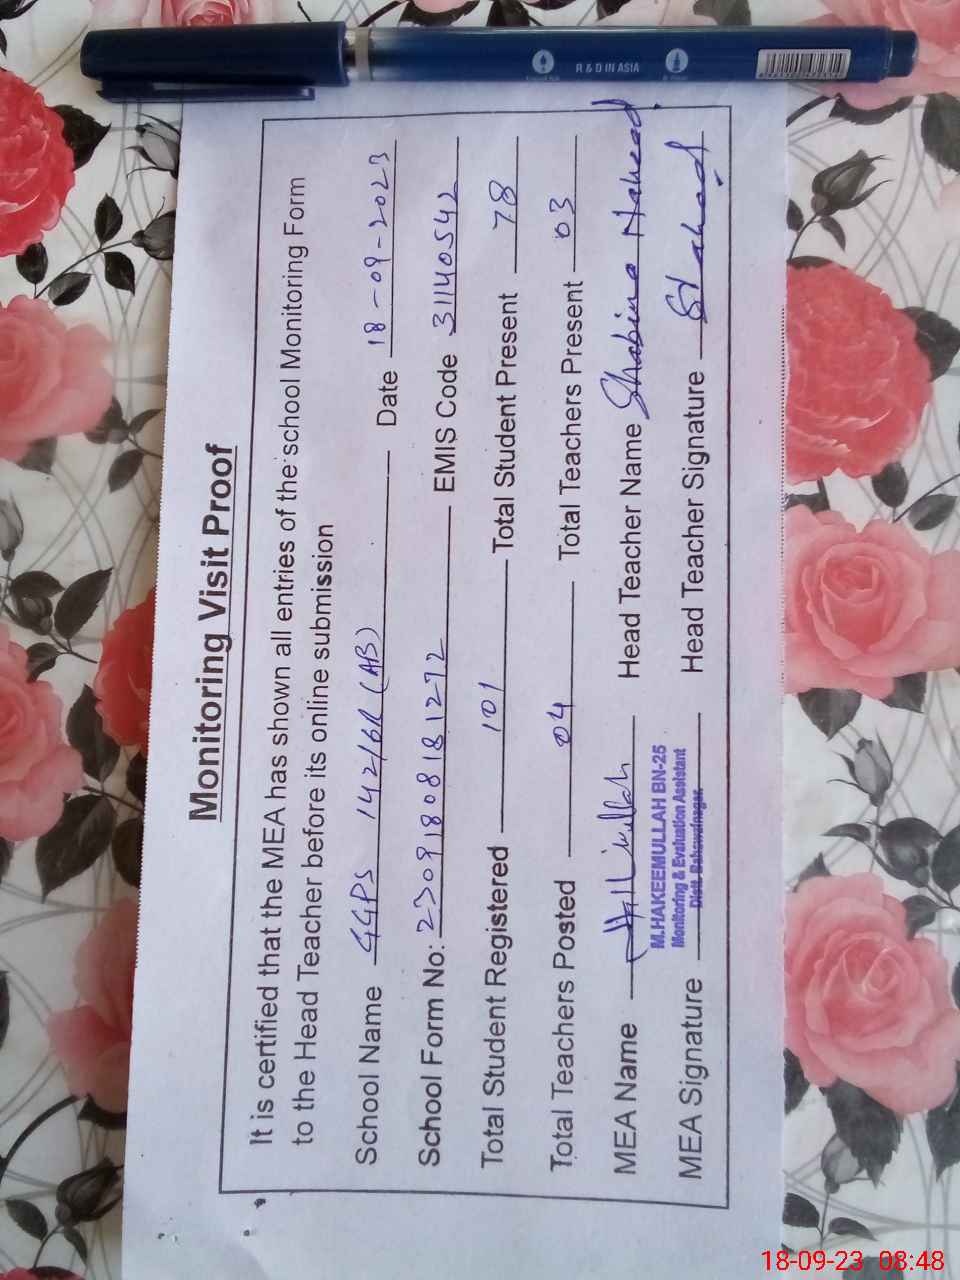 R & D IN ASIA
Monitoring Visit Proof
It is certified that the MEA has shown all entries of the school Monitoring Form
to the Head Teacher before its online submission
School Name GGPS 142/6R (AB) Date 18-09-2023
School Form No: 23091808181272 EMIS Code 31140542
Total Student Registered 101 Total Student Present 78
Total Teachers Posted 04 Total Teachers Present 03
MEA Name Head Teacher Name Shabina Naheed
M.HAKEEMULLAH BN-25
Monitoring & Evaluation Assistant
Distt. Bahawalnagar.
MEA Signature Head Teacher Signature
18-09-23 08:48